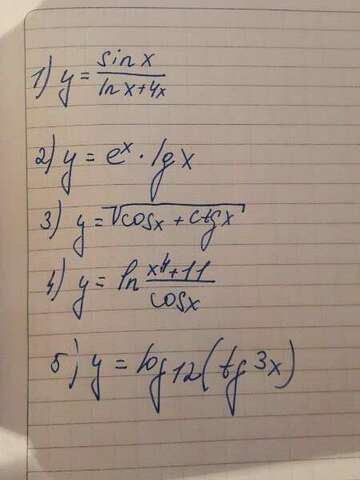 1) y = sin x / ln x + 4x
2) y = eˣ · lg x
3) y = √cos x + ctg x
4) y = ln x⁴ + 11 / cos x
5) y = log₁₂ (tg ³x)